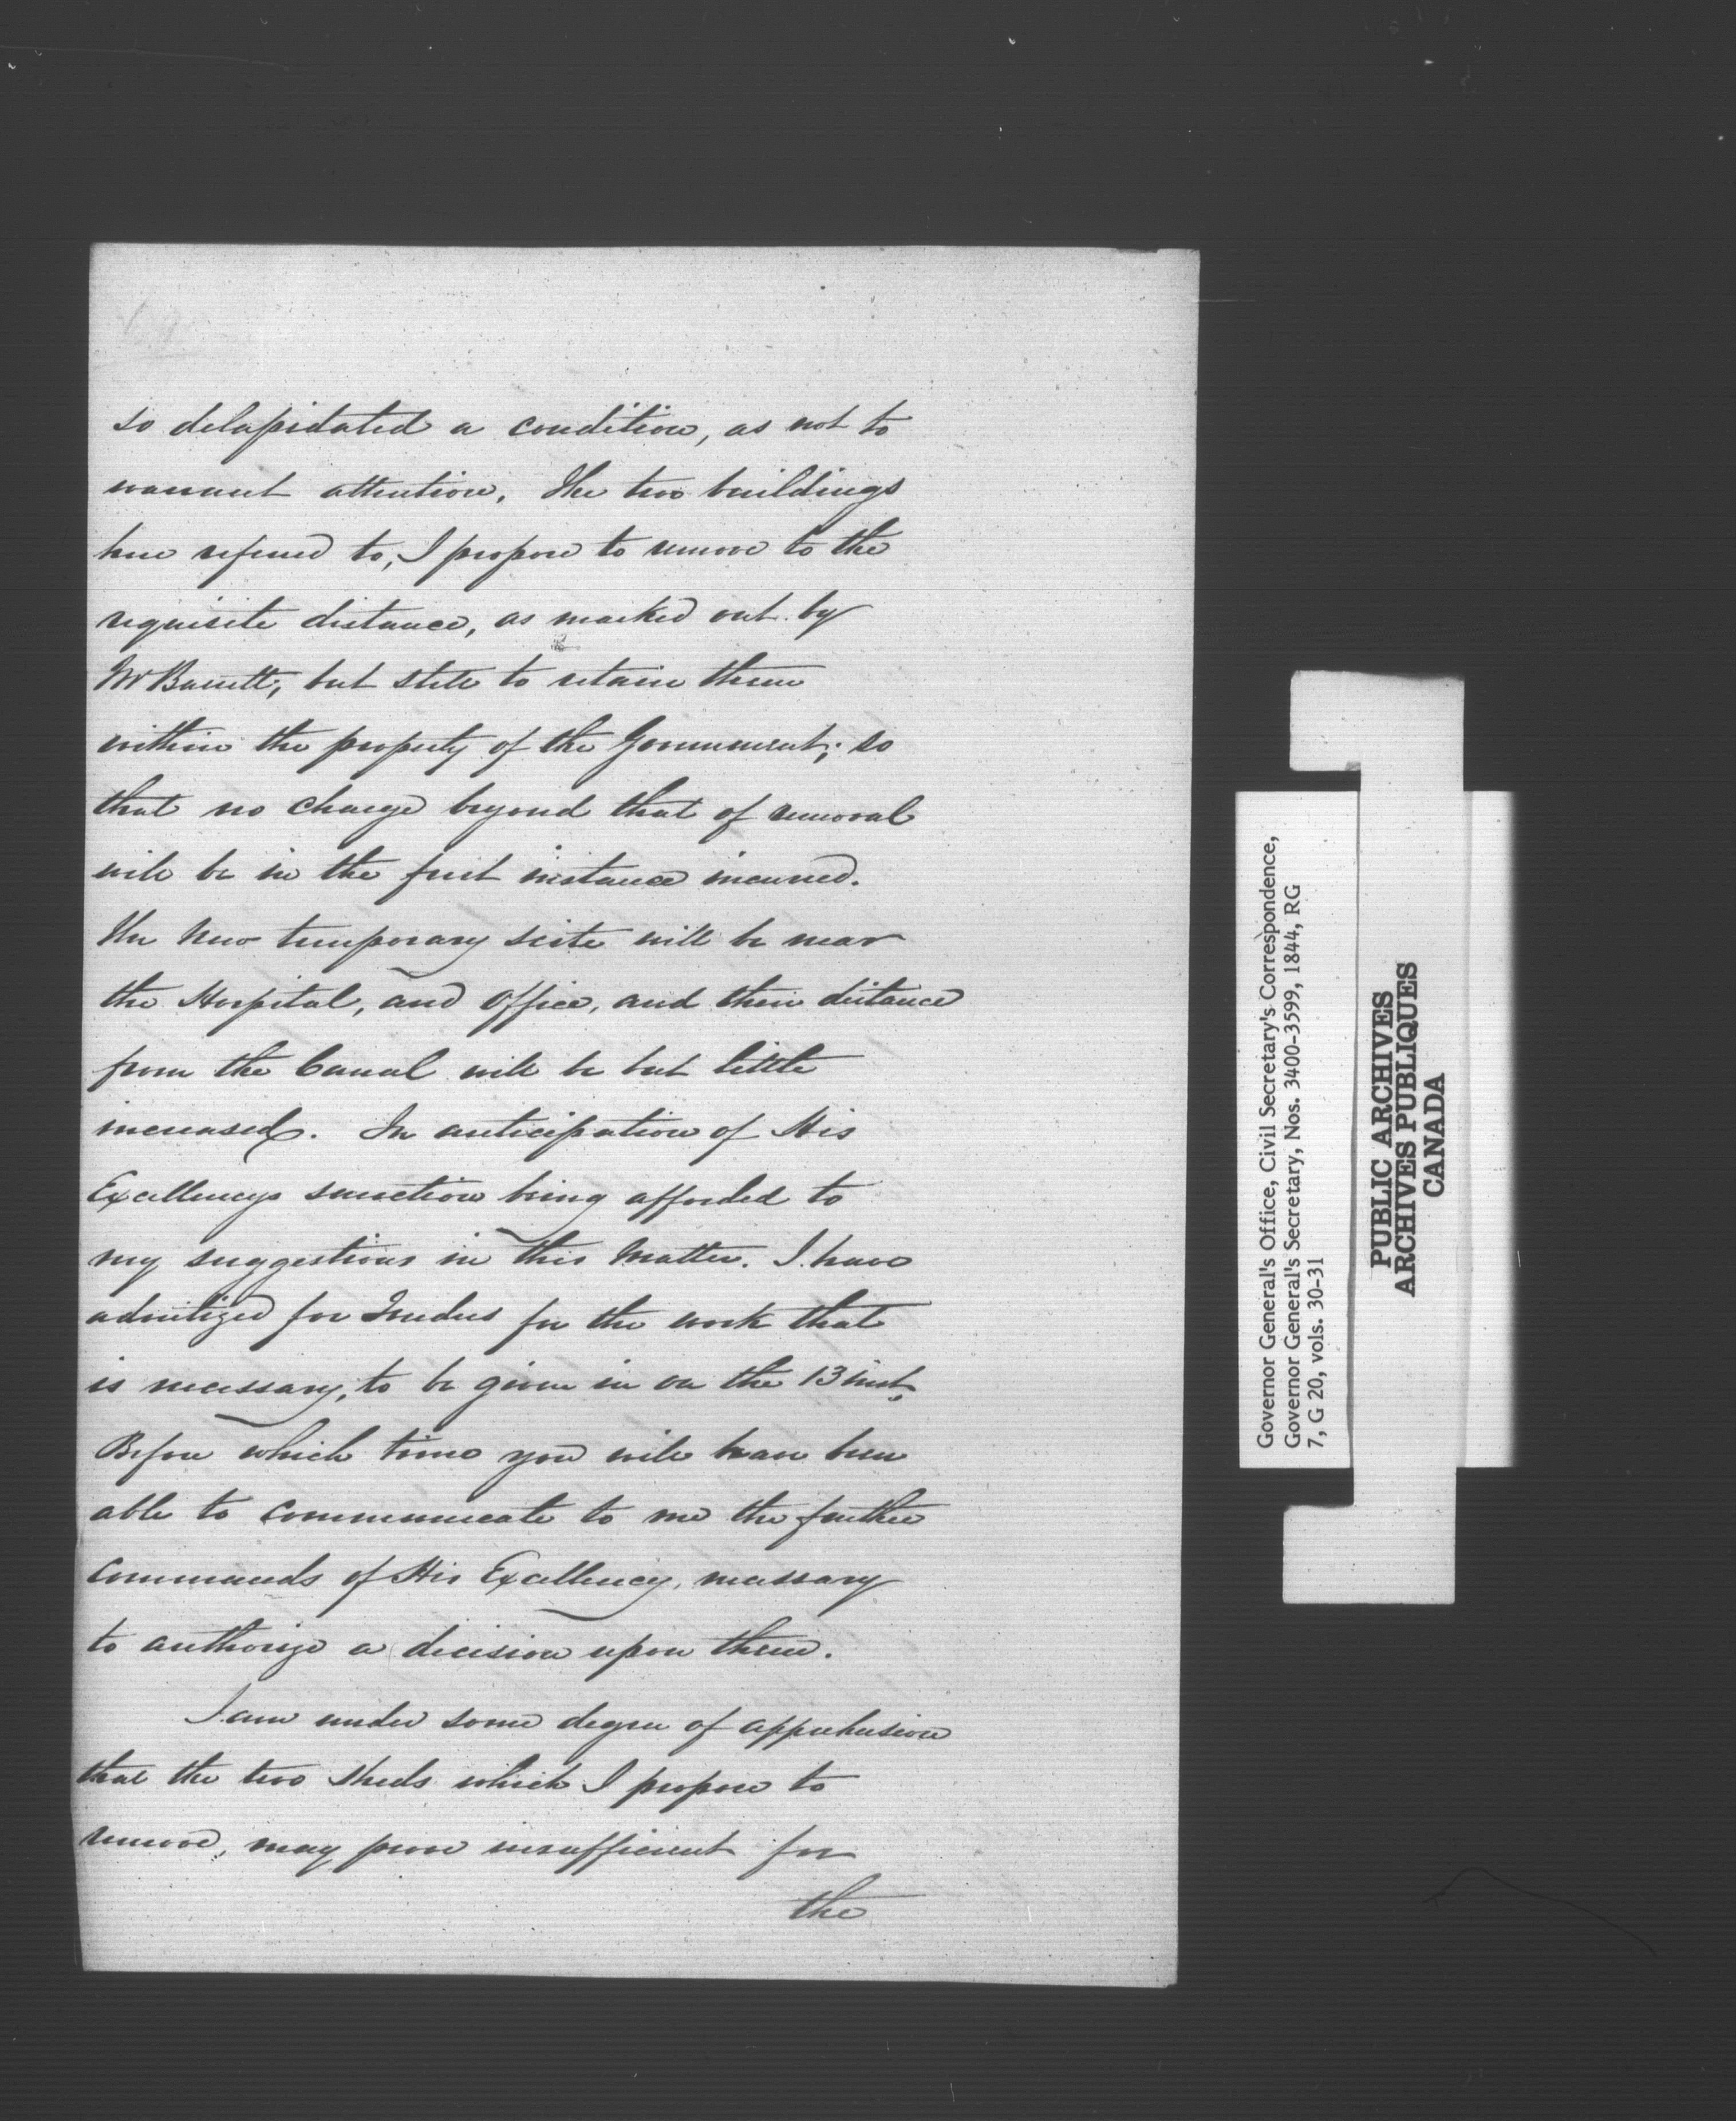 so delapidated a condition, as not to
warrant attention. The two buildings
here referred to, I propose to remove to the
requisite distance, as marked out by
Mr Barrett, but still to retain them
within the property of the Government; so
that no charge beyond that of removal
will be in the first instance incurred.
The new temporary scite will be near
the Hospital, and office, and their distance
from the Canal will be but little
increased. In anticipation of His
Excellencys sanction being afforded to
my suggestions in this matter. I have
advertized for Tenders for the work that
is necessary, to be given in on the 13 inst.
Before which time you will have been
able to communicate to me the further
commands of His Excellency, necessary
to authorize a decision upon them.
I am under some degree of apprehension
that the two sheds which I propose to
remove, may prove insufficient for
the
Governor General's Office, Civil Secretary's Correspondence,
Governor General's Secretary, Nos. 3400-3599, 1844, RG
7, G 20, vols. 30-31
PUBLIC ARCHIVES
ARCHIVES PUBLIQUES
CANADA